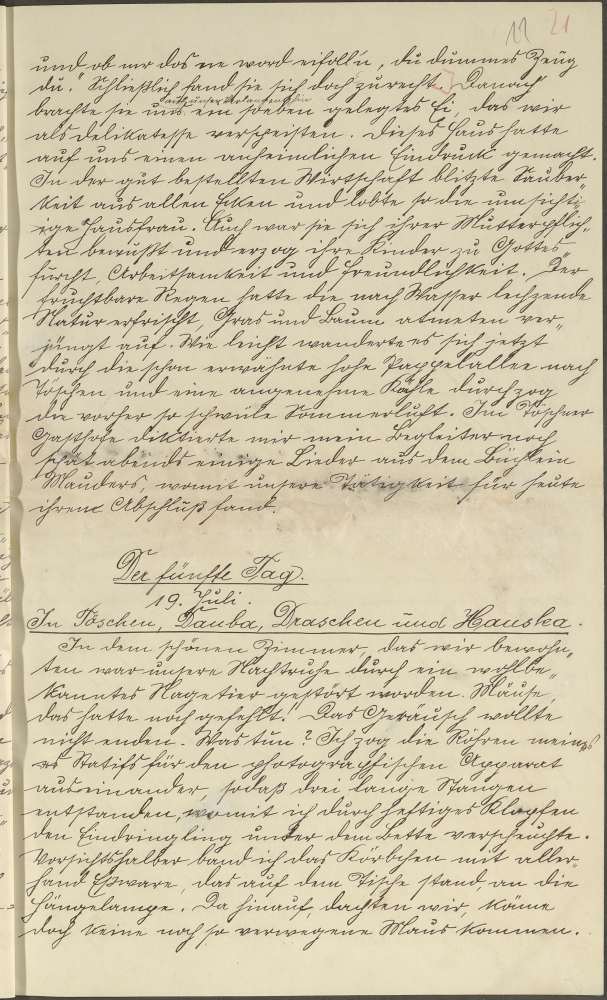 11 21
und ob mr dos ne word eifoll'n, du dummes Zeug
du." Schließlich fand sie sich doch zurecht. Danach
brachte sie uns ein soeben gelegtes Ei, das wir
als Delikatesse verspeisten. Dieses Haus hatte
auf uns einen anheimlichen Eindruck gemacht.
In der gut bestellten Wirtschaft blitzte Sauber-
keit aus allen Ecken und lobte so die umsichti-
ge Hausfrau. Auch war sie sich ihrer Mutterpflich-
ten bewußt und erzog ihre Kinder zu Gottes-
furcht, Arbeitsamkeit und Freundlichkeit. Der
fruchtbare Regen hatte die nach Wasser lechzende
Natur erfrischt, Gras und Baum atmeten ver-
jüngt auf. Wie leicht wanderte es sich jetzt
durch die schon erwähnte hohe Pappelallee nach
Töschen und eine angenehme Kühle durchzog
die vorher so schwüle Sommerluft. Im Töschner
Gasthofe diktierte mir mein Begleiter noch
spät abends einige Lieder aus dem Büchlein
Mauders, womit unsere Tätigkeit für heute
ihren Abschluß fand.
Der fünfte Tag.
19. Juli.
In Töschen, Dauba, Draschen und Hauska.
In dem schönen Zimmer, das wir bewohn-
ten war unsere Nachtruhe durch ein wohlbe-
kanntes Nagetier gestört worden. Mäuse,
das hatte noch gefehlt! Das Geräusch wollte
nicht enden. Was tun? Ich zog die Röhren meines
Statifs für den photographischen Apparat
auseinander, sodaß drei lange Stangen
entstanden, womit ich durch heftiges Klopfen
den Eindringling unter dem Bette verscheuchte.
Vorsichtshalber band ich das Körbchen mit aller-
hand Eßware, das auf dem Tische stand, an die
Hängelampe. Da hinauf, dachten wir, käme
doch keine noch so verwegene Maus kommen.